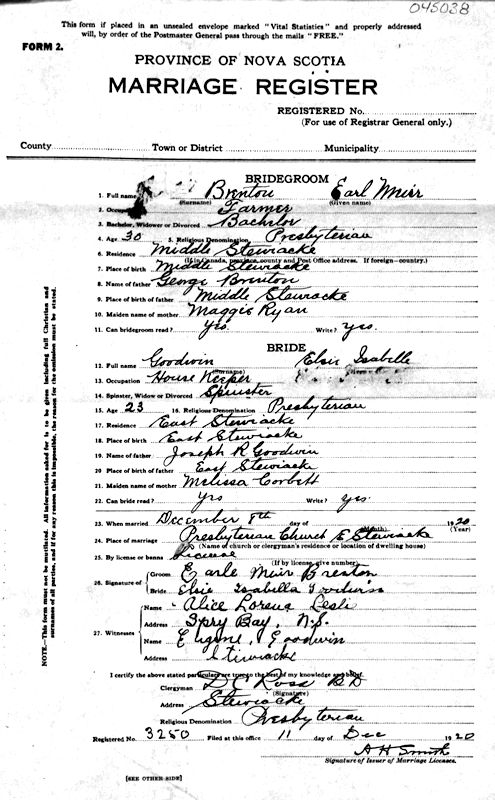 045038
This form if placed in an unsealed envelope marked "Vital Statistics" and properly addressed
will, by order of the Postmaster General pass through the mails "FREE."
FORM 2.
PROVINCE OF NOVA SCOTIA
MARRIAGE REGISTER
REGISTERED No.
(For use of Registrar General only.)
County Town or District Municipality
BRIDEGROOM
1. Full name Brenton Earl Muir
(Surname) (Given name)
2. Occupation Farmer
3. Bachelor, Widower or Divorced Bachelor
4. Age 30 5. Religious Denomination Presbyterian
6. Residence Middle Stewiacke
(If in Canada, province, county and Post Office address. If foreign—country.)
7. Place of birth Middle Stewiacke
8. Name of father George Brenton
9. Place of birth of father Middle Stewiacke
10. Maiden name of mother Maggie Ryan
11. Can bridegroom read? Yes. Write? Yes.
BRIDE
12. Full name Goodwin Elsie Isabelle
(Surname)
13. Occupation House Keeper
14. Spinster, Widow or Divorced Spinster
15. Age 23 16. Religious Denomination Presbyterian
17. Residence East Stewiacke
18. Place of birth East Stewiacke
19. Name of father Joseph R Goodwin
20. Place of birth of father East Stewiacke
21. Maiden name of mother Melissa Corbett
22. Can bride read? Yes Write? Yes.
23. When married December 8th day of 1920
(Month) (Year)
24. Place of marriage Presbyterian Church E. Stewiacke
(Name of church or clergyman's residence or location of dwelling house)
25. By license or banns License
(If by license, give number)
26. Signature of Groom Earle Muir Brenton
Bride Elsie Isabella Goodwin
27. Witnesses Name Alice Lorena Leslie
Address Spry Bay, N.S.
Name Eugene Goodwin
Address Stewiacke
I certify the above stated particulars are true to the best of my knowledge and belief.
Clergyman D C Ross B D
(Signature)
Address Stewiacke
Religious Denomination Presbyterian
Registered No. 3250 Filed at this office 11 day of Dec 1920
A H Smith
Signature of Issuer of Marriage Licenses.
[SEE OTHER SIDE]
NOTE.—This form must not be mutilated. All information asked for is to be given including full Christian and
surnames of all parties, and if for any reason this is impossible, the reason for the omission must be stated.